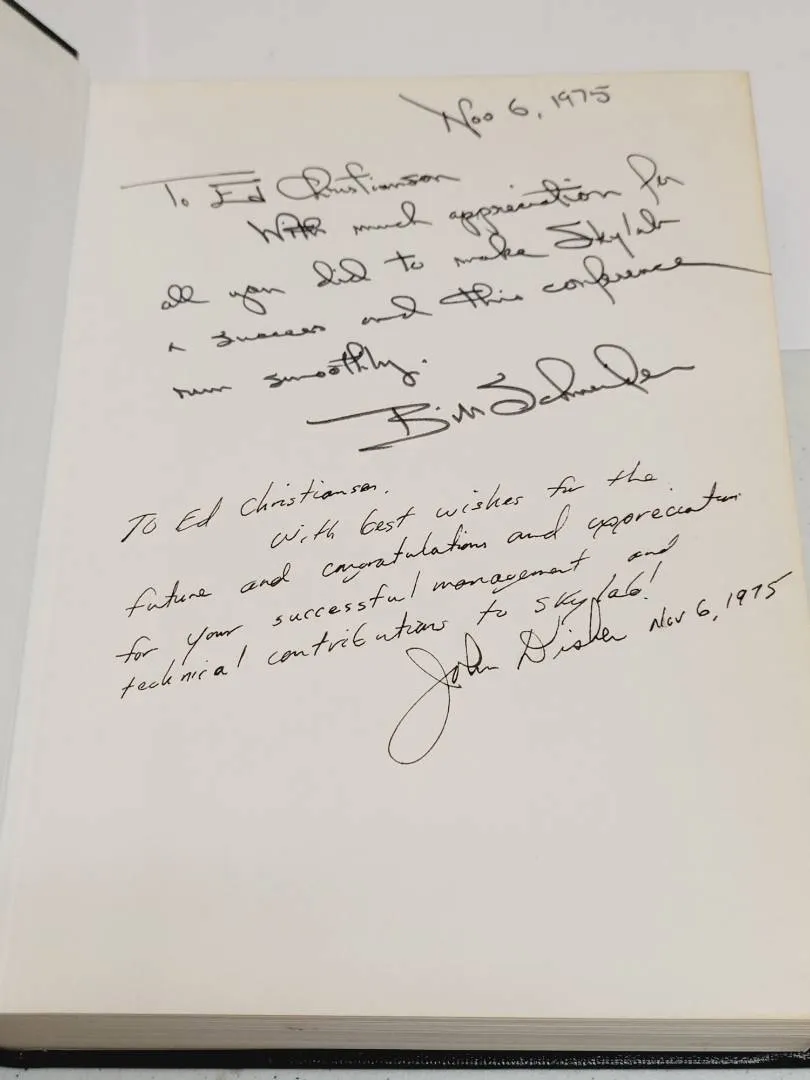 Nov 6, 1975
To Ed Christianson
With much appreciation for
all you did to make Skylab
a success and this conference
run smoothly.
Bill Schneider
To Ed Christianson.
With best wishes for the
future and congratulations and appreciation
for your successful management and
technical contributions to Skylab!
John Disher Nov 6, 1975